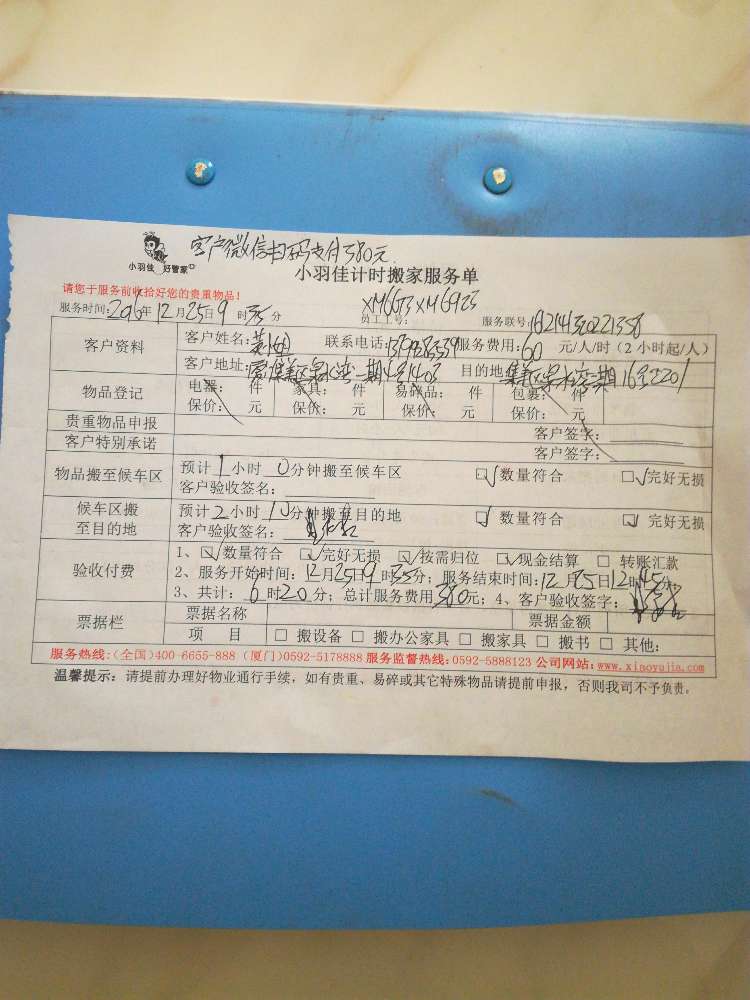 客户微信扫码支付380元
小羽佳 好管家
小羽佳计时搬家服务单
请您于服务前收拾好您的贵重物品!
服务时间:2016年12月25日9时35分 员工工号: XM6673 XM6923 服务联号:
客户资料 客户姓名: 联系电话: 服务费用:60 元/人/时(2小时起/人)
客户地址: 集美区 一期4号1403 目的地 集美区 一期16号2201
物品登记 电器: 件 家具: 件 易碎品: 件 包裹: 件
保价: 元 保价: 元 保价: 元 保价: 元
贵重物品申报 客户签字:
客户特别承诺 客户签字:
物品搬至候车区 预计1小时0分钟搬至候车区 ☑数量符合 ☑完好无损
客户验收签名:
候车区搬至目的地 预计2小时10分钟搬至目的地 ☑ 数量符合 ☑ 完好无损
客户验收签名:
验收付费 1、☑数量符合 ☑完好无损 ☑按需归位 ☑现金结算 □ 转账汇款
2、服务开始时间:12月25日9时35分;服务结束时间:12月25日12时45分
3、共计:6时20分;总计服务费用380元;4、客户验收签字:
票据栏 票据名称 票据金额
项 目 □ 搬设备 □ 搬办公家具 □ 搬家具 □ 搬书 □ 其他:
服务热线:(全国)400-6655-888 (厦门)0592-5178888 服务监督热线:0592-5888123 公司网站:www.xiaoyujia.com
温馨提示:请提前办理好物业通行手续,如有贵重、易碎或其它特殊物品请提前申报,否则我司不予负责。